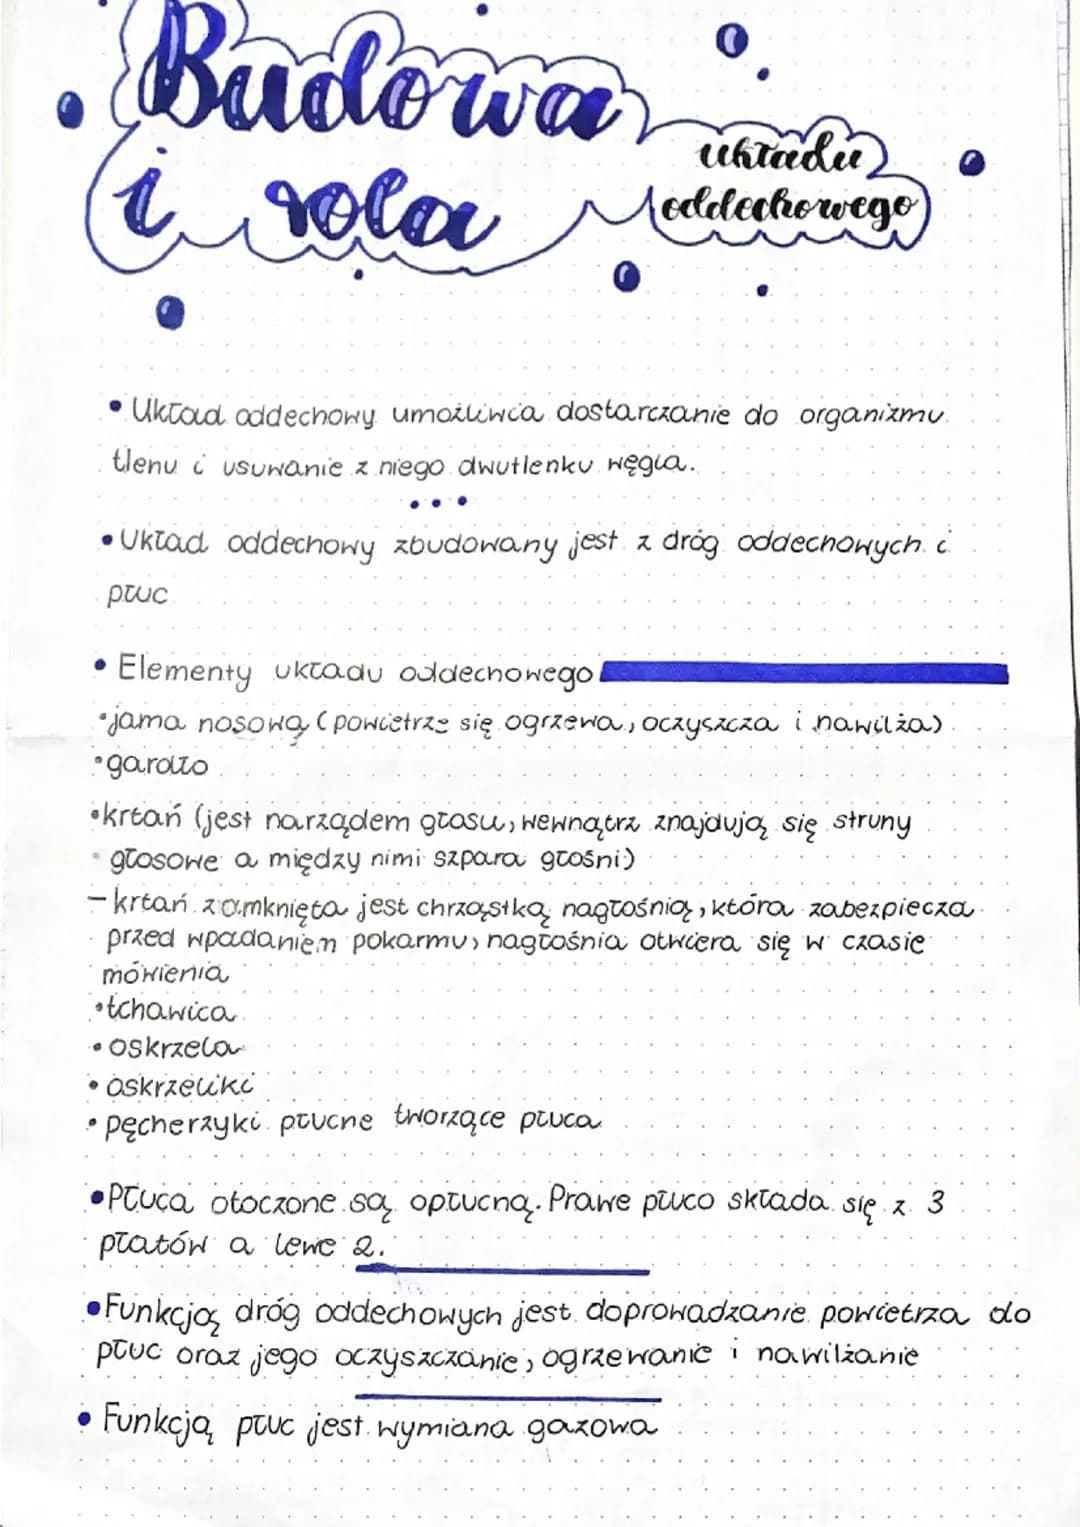 Budowa
i rola
układu
oddechowego
• Układ oddechowy umożliwia dostarczanie do organizmu
tlenu i usuwanie z niego dwutlenku węgla.
• Układ oddechowy zbudowany jest z dróg oddechowych i
płuc
• Elementy układu oddechowego
• jama nosową (powietrze się ogrzewa, oczyszcza i nawilża)
• gardło
• krtań (jest narządem głosu, wewnątrz znajdują się struny
głosowe a między nimi szpara głośni)
- krtań zamknięta jest chrząstką nagłośnią, która zabezpiecza
przed wpadaniem pokarmu, nagłośnia otwiera się w czasie
mówienia
• tchawica
• oskrzela
• oskrzeliki
• pęcherzyki płucne tworzące płuca
• Płuca otoczone są opłucną. Prawe płuco składa się z 3
płatów a lewe 2.
• Funkcją dróg oddechowych jest doprowadzanie powietrza do
płuc oraz jego oczyszczanie, ogrzewanie i nawilżanie
• Funkcją płuc jest wymiana gazowa